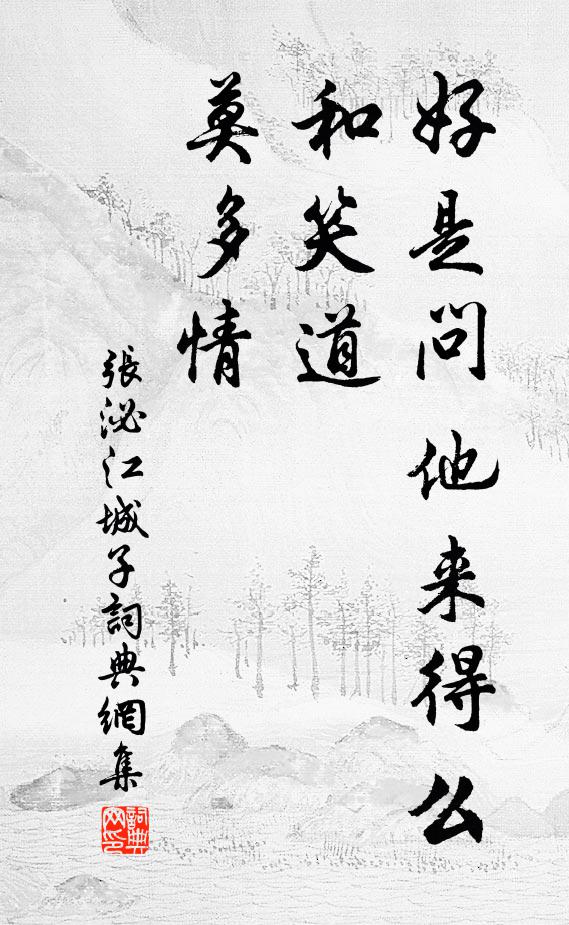 好是问他来得么
和笑道
莫多情
張泌江城子詞典網集
詞典網印